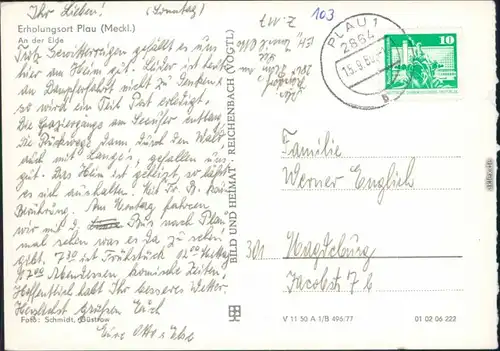 Ihr Lieben! (Sonntag)
Erholungsort Plau (Meckl.)
An der Elde
Trotz Gewitterregen gefällt es uns
hier am Heim gut. Leider ist heute
an Dampferfahrt nicht zu denken,
so wird ein Teil Post erledigt.
Die Spaziergänge am Seeufer entlang
Die Rückwege dann durch den Wald
auch mit Langes, gefallen uns
gut. Das Heim ist geheizt, so läßt
es sich aushalten. Mit Fr. B. kein
Berührung. Am Montag fahren
wir mit d. Bus nach Plau
mal sehen was es da zu sehen
gibt. 7.30 ist Frühstück 12.00 Mittag
17.00 Abendessen, komische Zeiten,
Hoffentlich habt Ihr besseres Wetter.
Herzlichst grüßen Euch
Eure Otto u. Else
Foto: Schmidt, Güstrow
BILD UND HEIMAT · REICHENBACH (VOGTL)
Z. M 7
103
PLAU 1
2864
15.9.80
B
10
Familie
Werner Englich
301 Magdeburg
Jacobstr 7 b
V 11 50 A 1/B 496/77
01 02 06 222